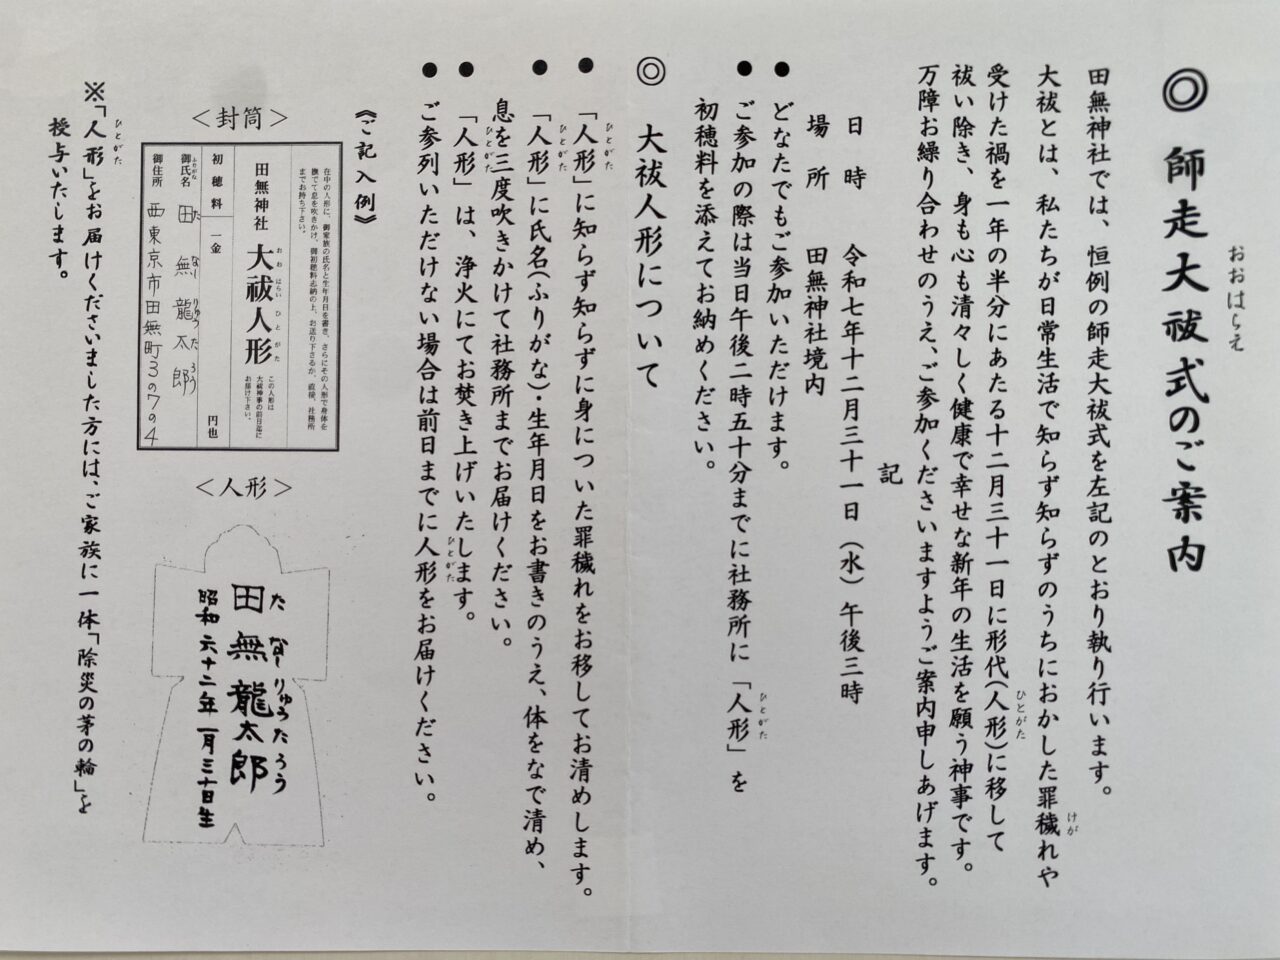 ◎ 師走大祓式のご案内
おおはらえ
田無神社では、恒例の師走大祓式を左記のとおり執り行います。
大祓とは、私たちが日常生活で知らず知らずのうちにおかした罪穢れや
けが
受けた禍を一年の半分にあたる十二月三十一日に形代(人形)に移して
ひとがた
祓い除き、身も心も清々しく健康で幸せな新年の生活を願う神事です。
万障お繰り合わせのうえ、ご参加くださいますようご案内申しあげます。
記
日 時 令和七年十二月三十一日(水)午後三時
場 所 田無神社境内
● どなたでもご参加いただけます。
● ご参加の際は当日午後二時五十分までに社務所に「人形」を
ひとがた
初穂料を添えてお納めください。
◎ 大祓人形について
● 「人形」に知らず知らずに身についた罪穢れをお移してお清めします。
ひとがた
● 「人形」に氏名(ふりがな)・生年月日をお書きのうえ、体をなで清め、
ひとがた
息を三度吹きかけて社務所までお届けください。
● 「人形」は、浄火にてお焚き上げいたします。
ひとがた
● ご参列いただけない場合は前日までに人形をお届けください。
ひとがた
《ご記入例》
<封筒>
在中の人形に、御家族の氏名と生年月日を書き、さらにその人形で身体を
撫でて息を吹きかけ、御初穂料志納の上、お送り下さるか、直接、社務所
までお持ち下さい。
田無神社 大祓人形
おおはらいひとがた
この人形は
大祓神事の前日迄に
お届け下さい。
初穂料 一金 円也
御氏名 田無龍太郎
ふりがな たなしりゅうたろう
御住所 西東京市田無町3の7の4
<人形>
田無龍太郎
たなしりゅうたろう
昭和六十二年一月三十日生
※「人形」をお届けくださいました方には、ご家族に一体「除災の茅の輪」を
ひとがた
授与いたします。